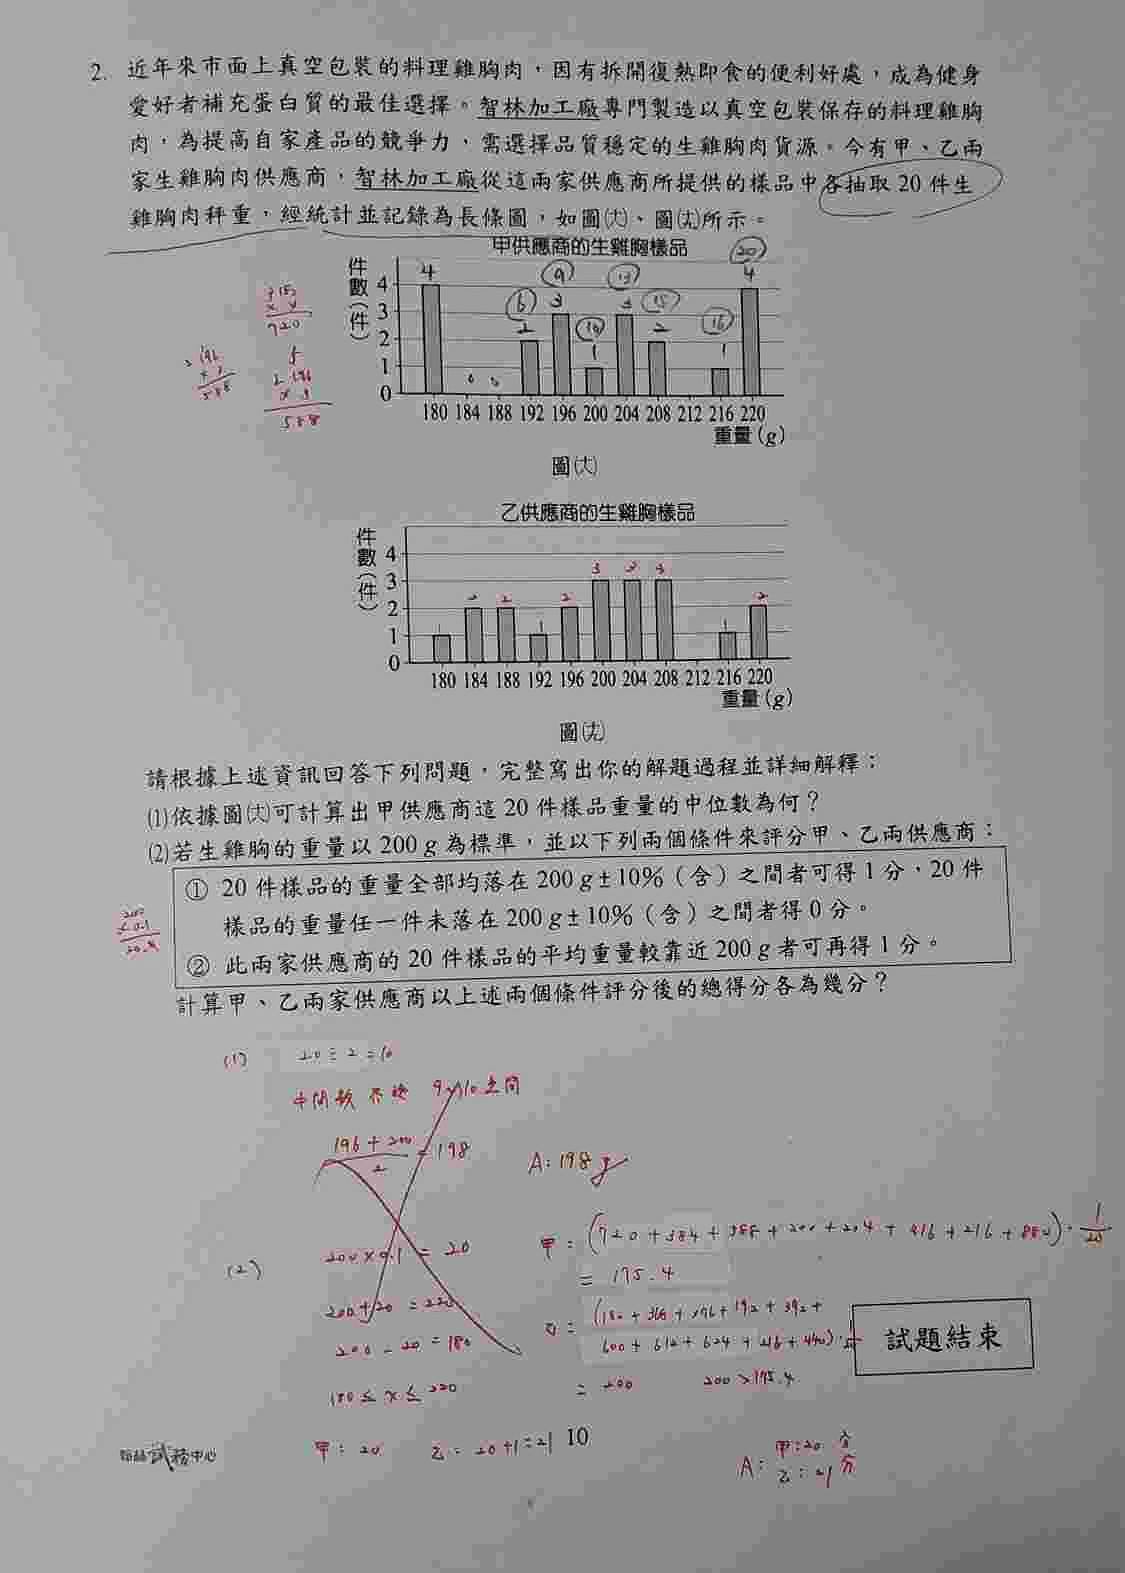 2. 近年來市面上真空包裝的料理雞胸肉，因有拆開復熱即食的便利好處，成為健身
愛好者補充蛋白質的最佳選擇。智林加工廠專門製造以真空包裝保存的料理雞胸
肉，為提高自家產品的競爭力，需選擇品質穩定的生雞胸肉貨源。今有甲、乙兩
家生雞胸肉供應商，智林加工廠從這兩家供應商所提供的樣品中各抽取 20 件生
雞胸肉秤重，經統計並記錄為長條圖，如圖㈩㈧、圖㈩㈨所示。
甲供應商的生雞胸樣品
件數（件）
4
3
2
1
0
4
2
3
1
2
1
4
6
9
15
16
20
180 184 188 192 196 200 204 208 212 216 220
重量(g)
×4
720
196
588
196
× 3
588
乙供應商的生雞胸樣品
件數（件）
4
3
2
1
0
1 2 2 1 2 3 3 3 1 2
180 184 188 192 196 200 204 208 212 216 220
重量(g)
請根據上述資訊回答下列問題，完整寫出你的解題過程並詳細解釋：
(1)依據圖㈩㈧可計算出甲供應商這 20 件樣品重量的中位數為何？
(2)若生雞胸的重量以 200 g 為標準，並以下列兩個條件來評分甲、乙兩供應商：
① 20 件樣品的重量全部均落在 200 g±10%（含）之間者可得 1 分，20 件
樣品的重量任一件未落在 200 g±10%（含）之間者得 0 分。
② 此兩家供應商的 20 件樣品的平均重量較靠近 200 g 者可再得 1 分。
計算甲、乙兩家供應商以上述兩個條件評分後的總得分各為幾分？
200
×0.1
20.0
(1) 20÷2=10
中間數 9、10之間
196+200
2
=198
A：198g
(2) 200×0.1 = 20
200+20 = 220
200-20 = 180
180≤x≤220
甲：20 乙：20+1=21
甲：(720+384+588+200+204+416+216+880)·1/20
= 175.4
乙：(180+368+376+192+392+
600+612+624+216+440)·
= 200 200>175.4
A：甲：20分
乙：21分
試題結束
試務中心
10